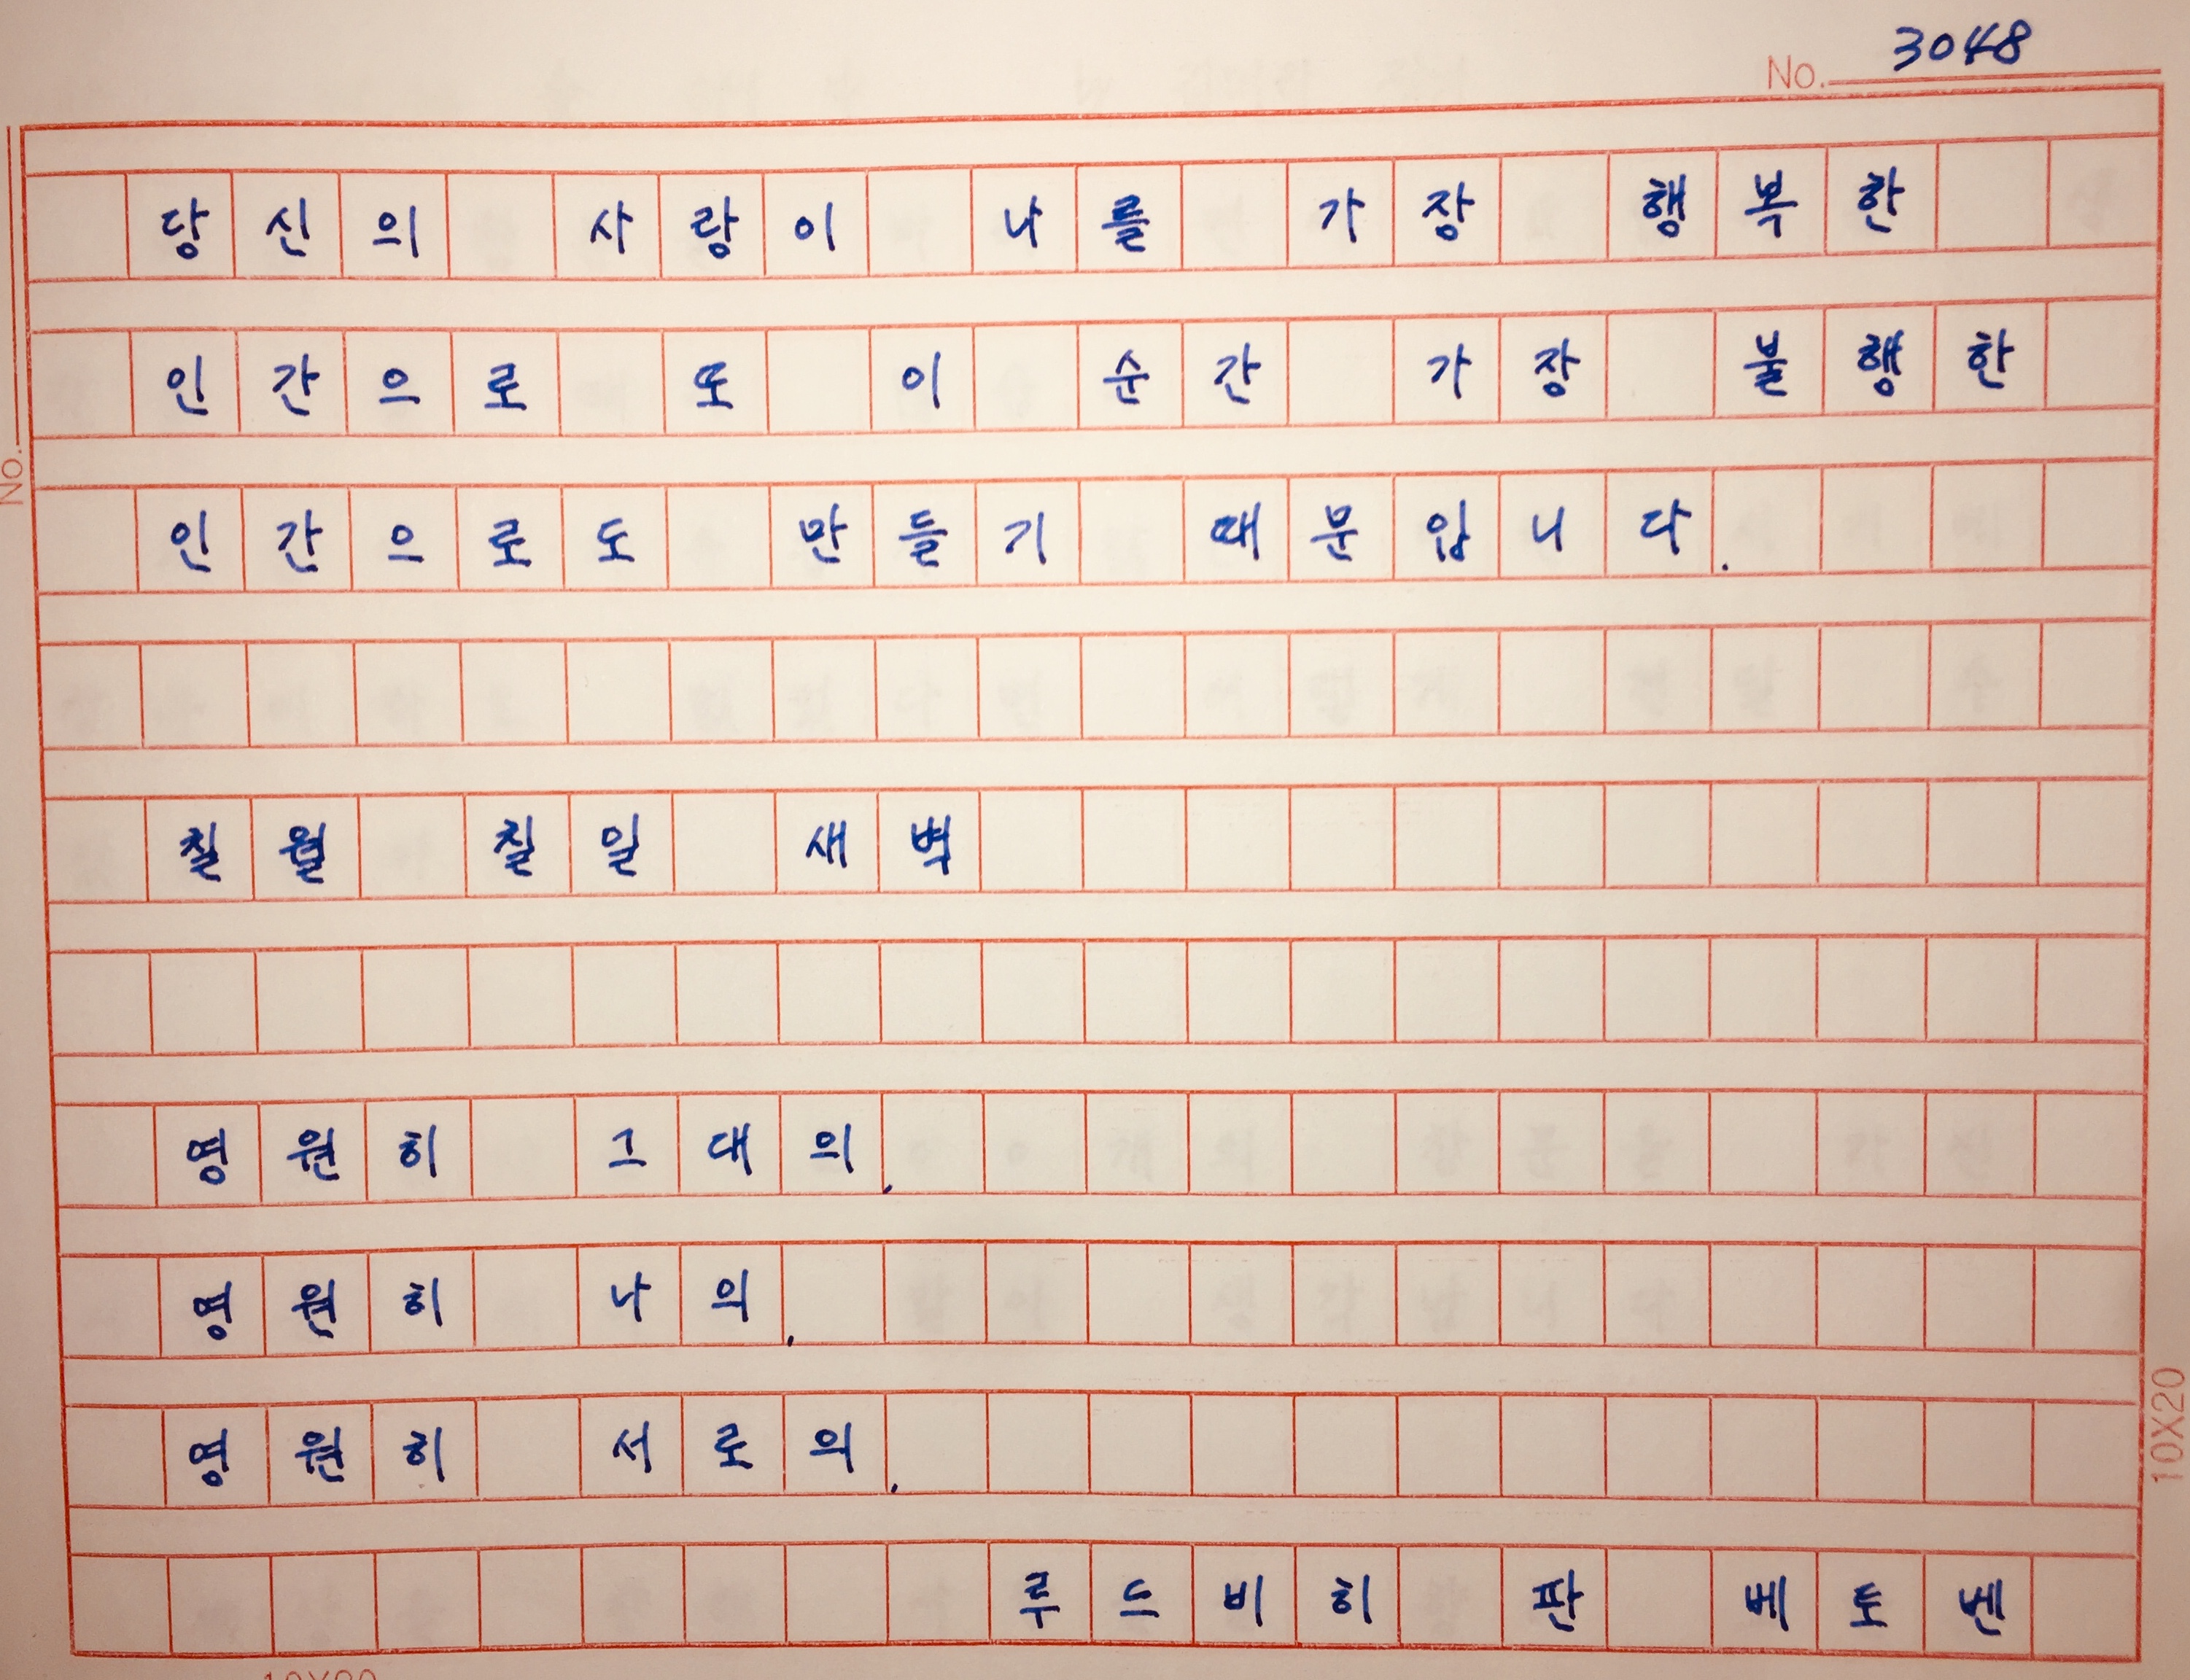 No. 3048
당신의 사랑이 나를 가장 행복한
인간으로 또 이 순간 가장 불행한
인간으로도 만들기 때문입니다.
칠월 칠일 새벽
영원히 그대의.
영원히 나의.
영원히 서로의.
루드비히 판 베토벤
No.
10X20
10X20